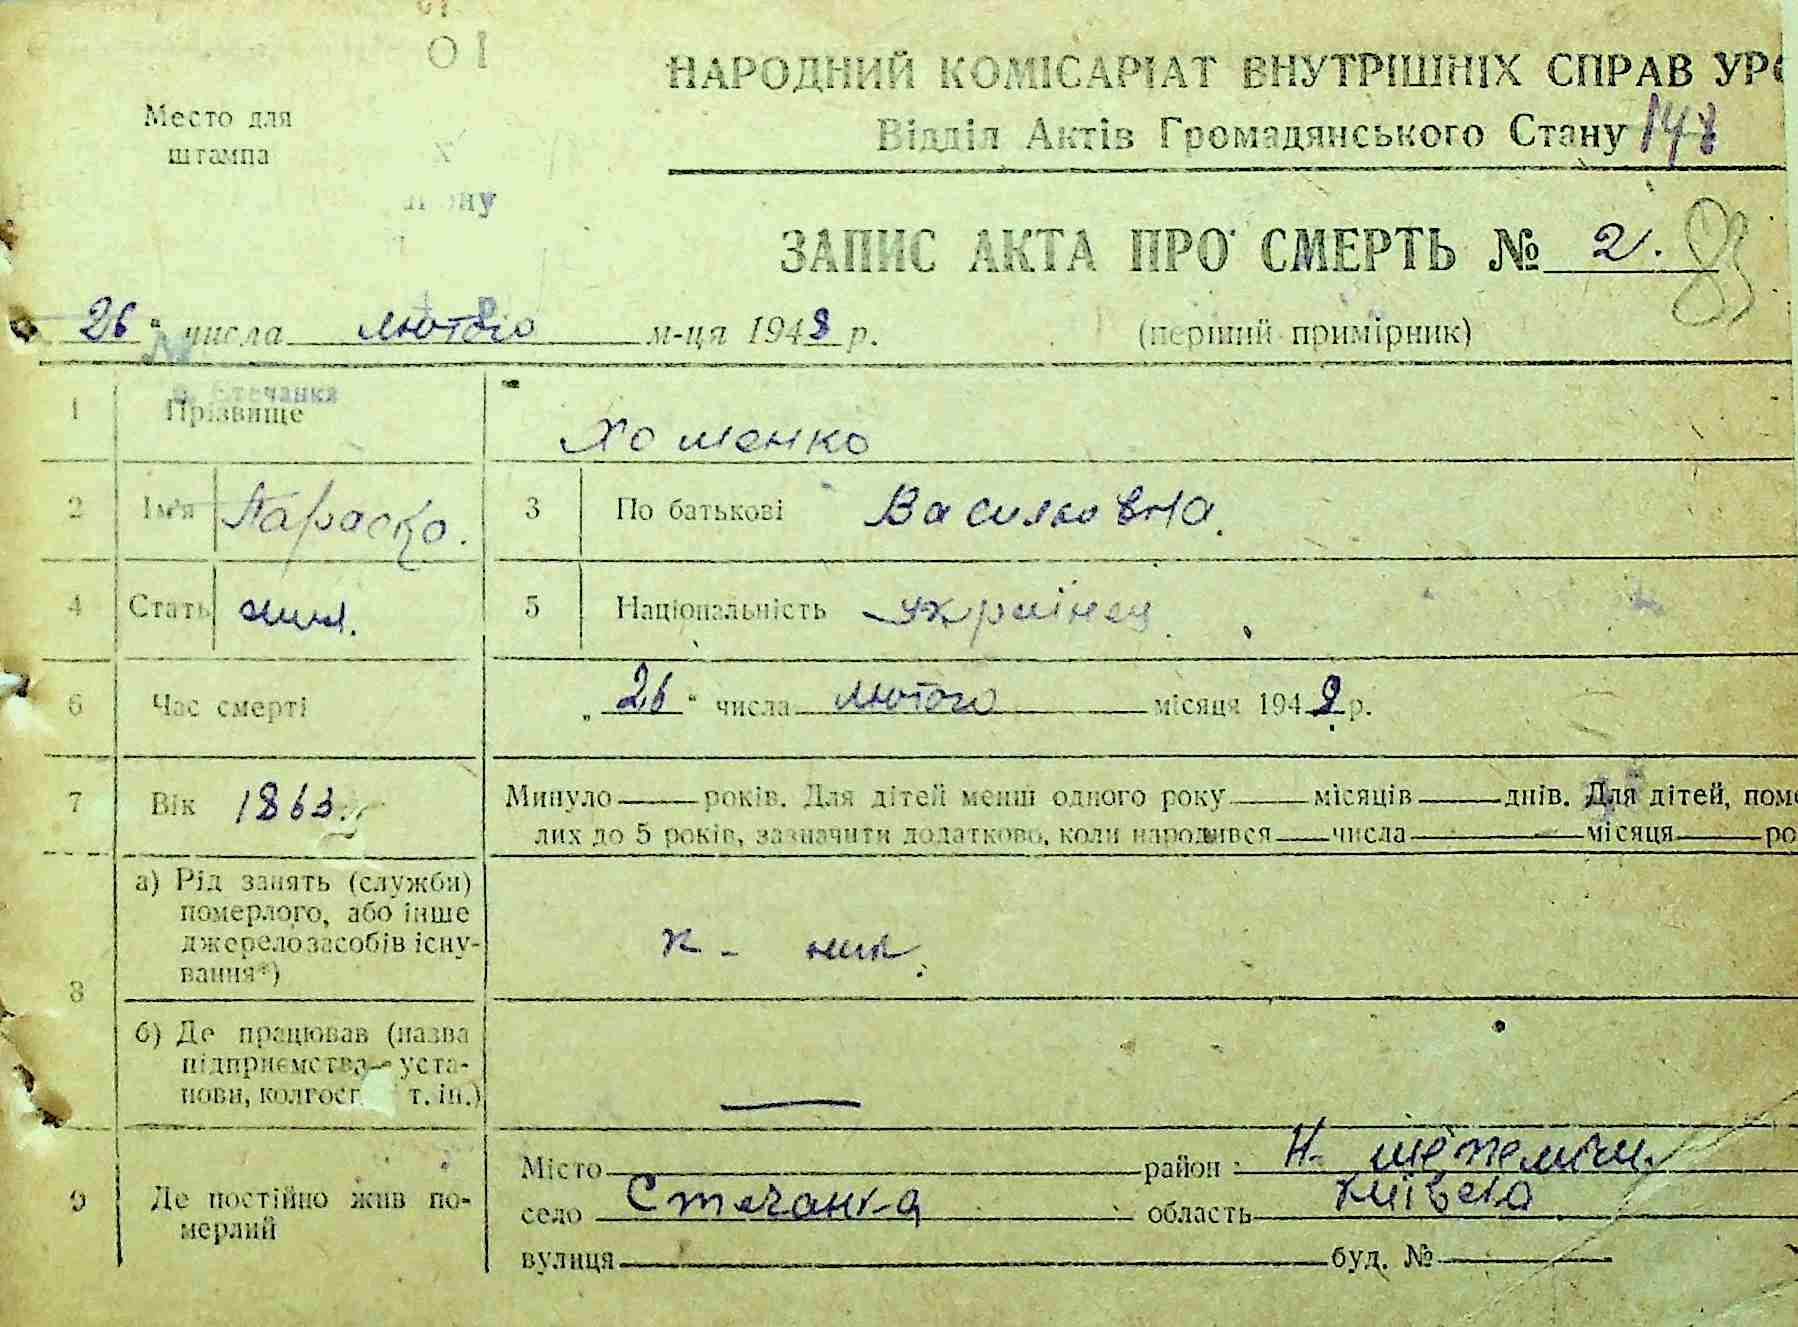 НАРОДНИЙ КОМІСАРІАТ ВНУТРІШНІХ СПРАВ УРС
Место для штампа
Відділ Актів Громадянського Стану 148
ЗАПИС АКТА ПРО СМЕРТЬ № 2. 83
26 " числа лютого м-ця 1948 р. (перший примірник)
с. Стечанка
1 Прізвище Хоменко
2 Ім'я Параска. 3 По батькові Васильовна.
4 Стать 5 Національність україн
6 Час смерті „ 26 " числа лютого місяця 1948 р.
7 Вік 1863. Минуло — років. Для дітей менш одного року — місяців — днів. Для дітей, поме
лих до 5 років, зазначити додатково, коли народився — числа — місяця — ро
8 а) Рід занять (служби)
померлого, або інше
джерело засобів існу-
вання*)
б) Де працював (назва
підприємства уста-
нови, колгосп т. ін.) —
9 Де постійно жив по-
мерлий
Місто район: Н-Шепеліч.
село Стечанка область Київска
вулиця буд. №